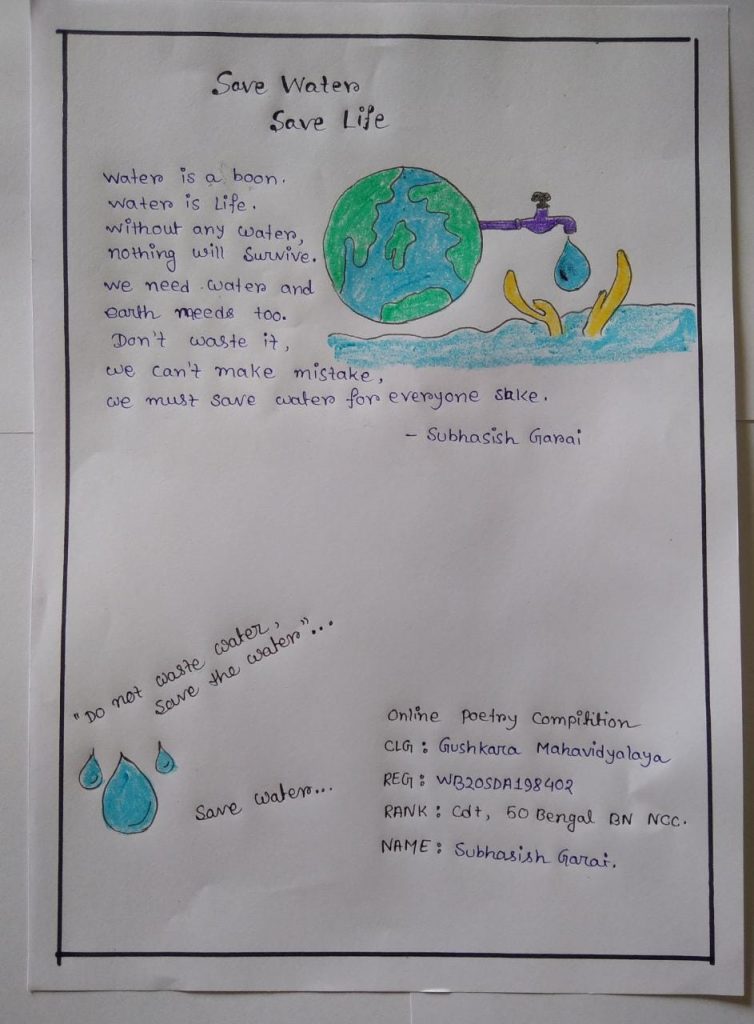 Save Water
Save Life
Water is a boon.
Water is Life.
Without any water,
nothing will survive.
We need water and
earth needs too.
Don't waste it,
we can't make mistake,
we must save water for everyone sake.
- Subhasish Garai
"Do not waste water,
save the water"...
Save water...
Online Poetry Compitition
CLG : Gushkara Mahavidyalaya
REG : WB20SDA198402
RANK : Cdt, 50 Bengal BN NCC.
NAME : Subhasish Garai.